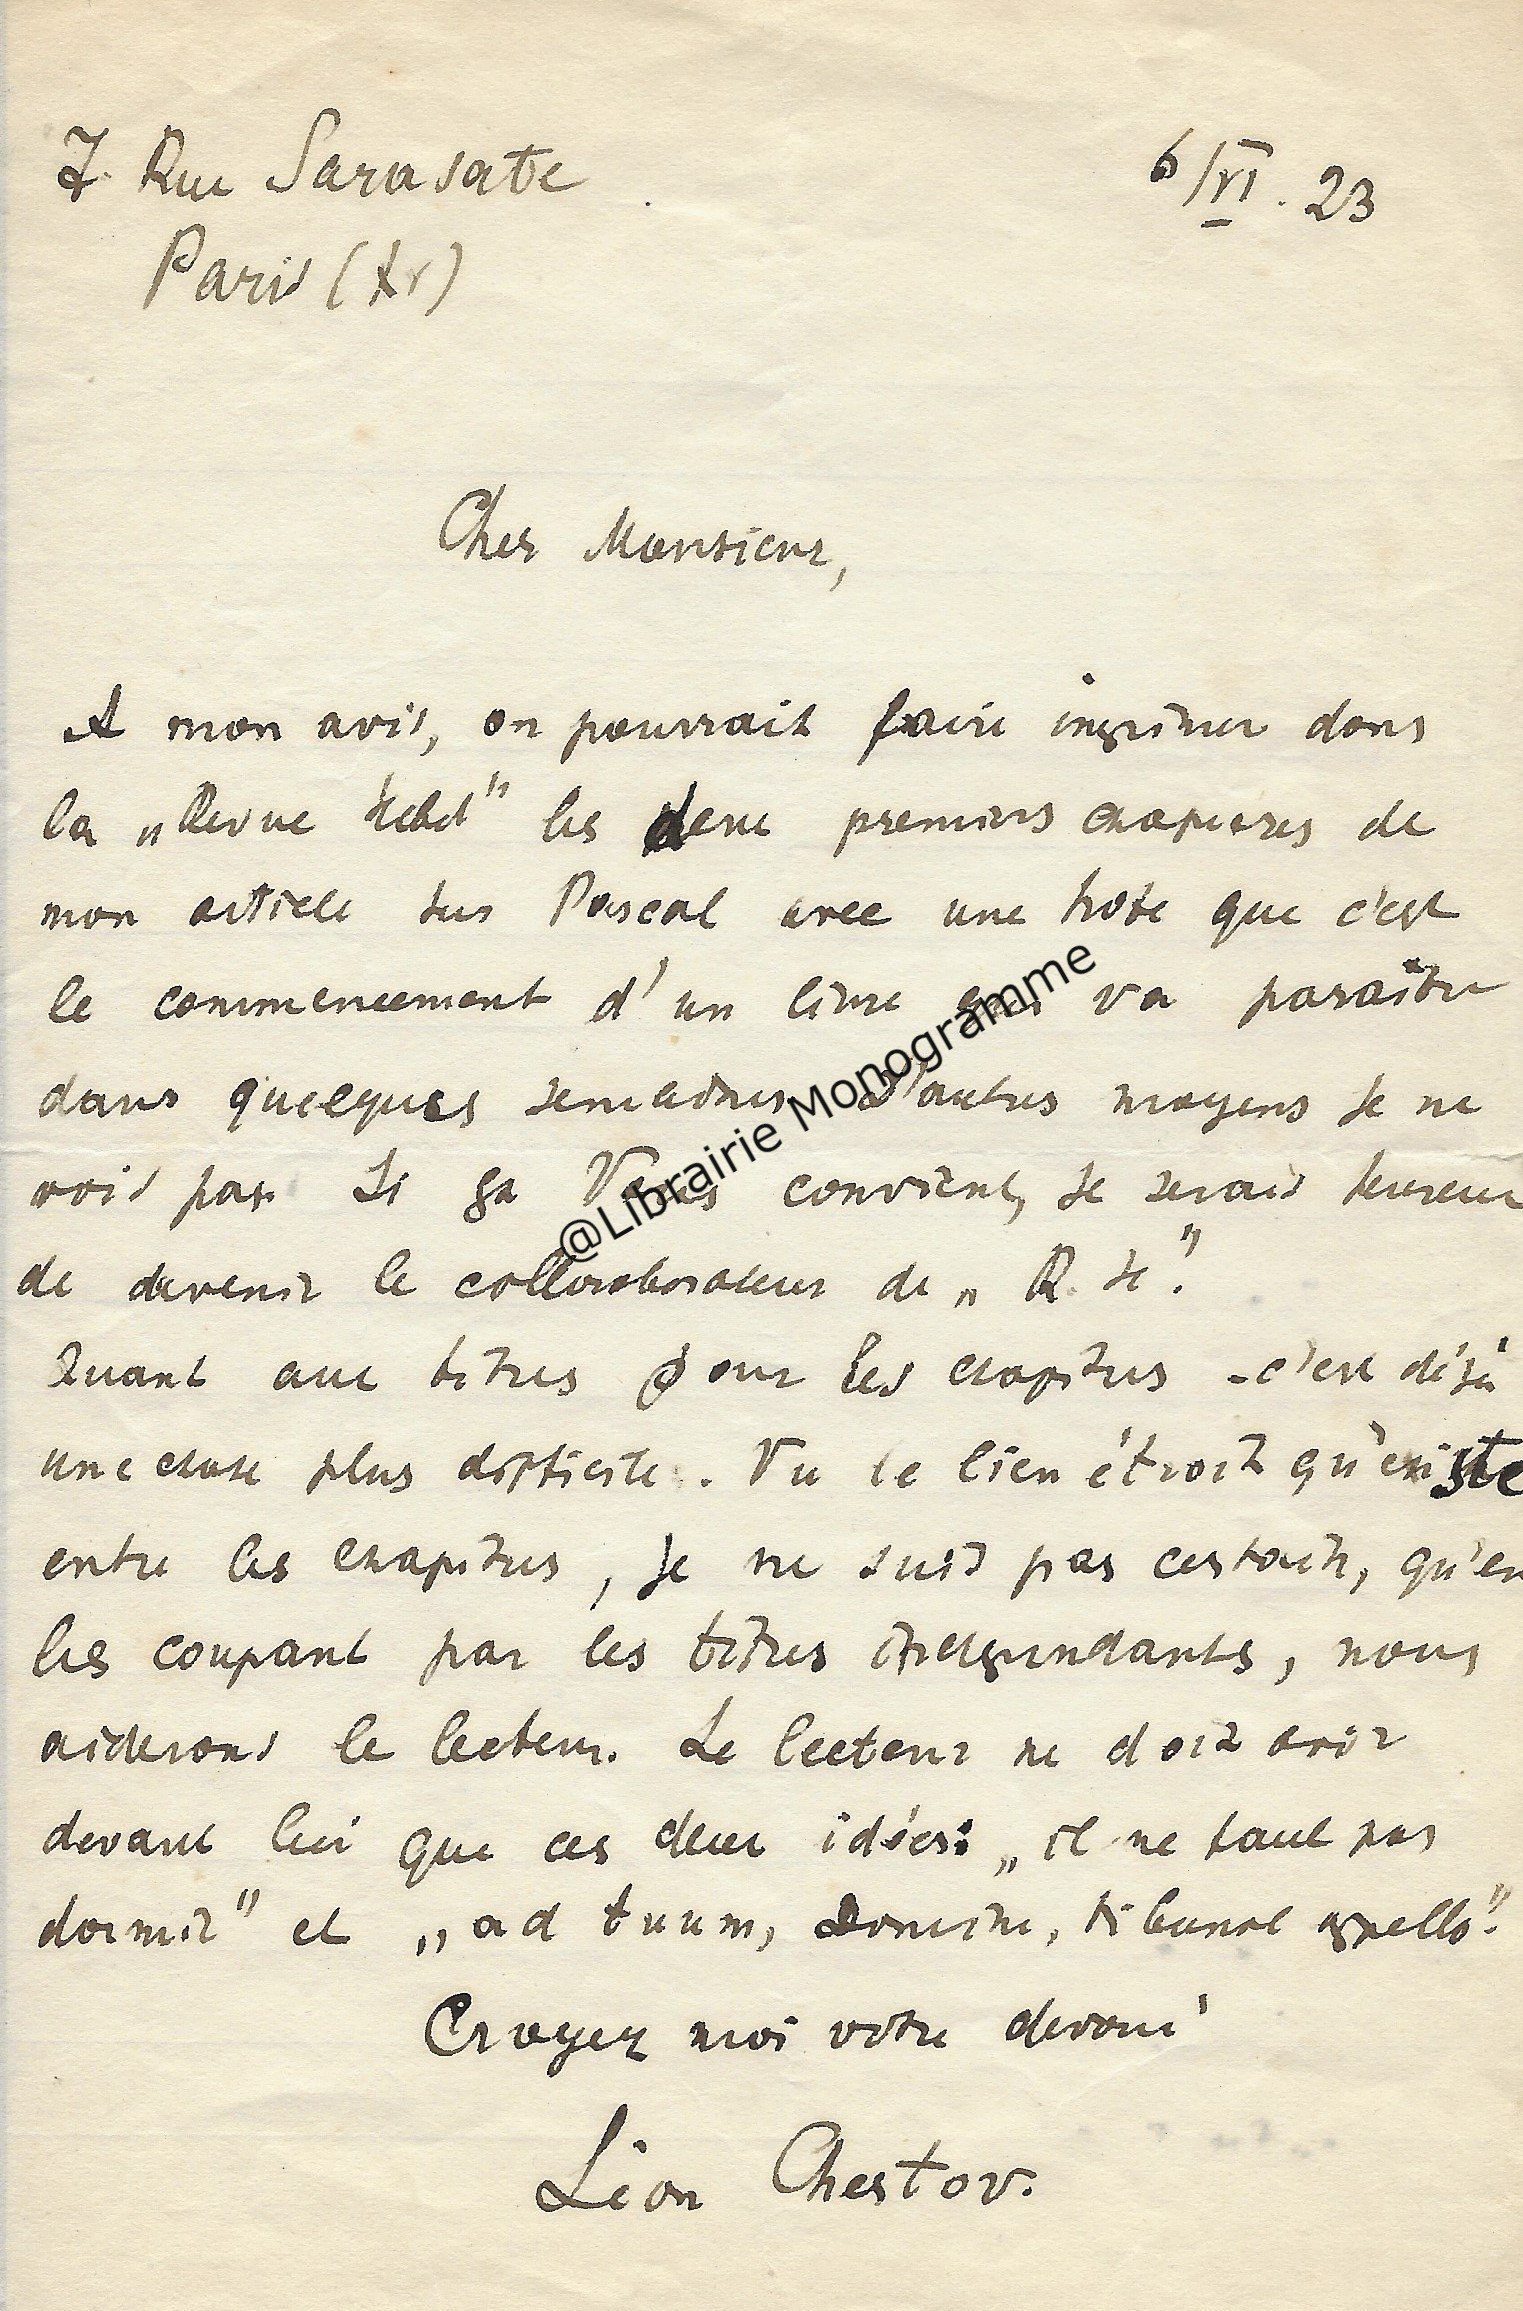 7. Rue Sarasate
Paris (XV)
6/VI. 23
Cher Monsieur,
A mon avis, on pourrait faire imprimer dans
la „Revue Hebd" les deux premiers chapitres de
mon article sur Pascal avec une note que c'est
le commencement d'un livre qui va paraître
dans quelques semaines. D'autres moyens je ne
vois pas. Si ça Vous convient, je serais heureux
de devenir le collaborateur de „R. H".
Quant aux titres pour les chapitres - c'est déjà
une chose plus difficile. Vu le lien étroit qu'existe
entre les chapitres, je ne suis pas certain, qu'en
les coupant par les titres indépendants, nous
aiderons le lecteur. Le lecteur ne doit avoir
devant lui que ces deux idées: „il ne faut pas
dormir" et „ad tuum, Domine, tribunal appello".
Croyez moi votre dévoué
Léon Chestov.
@Librairie Monogramme